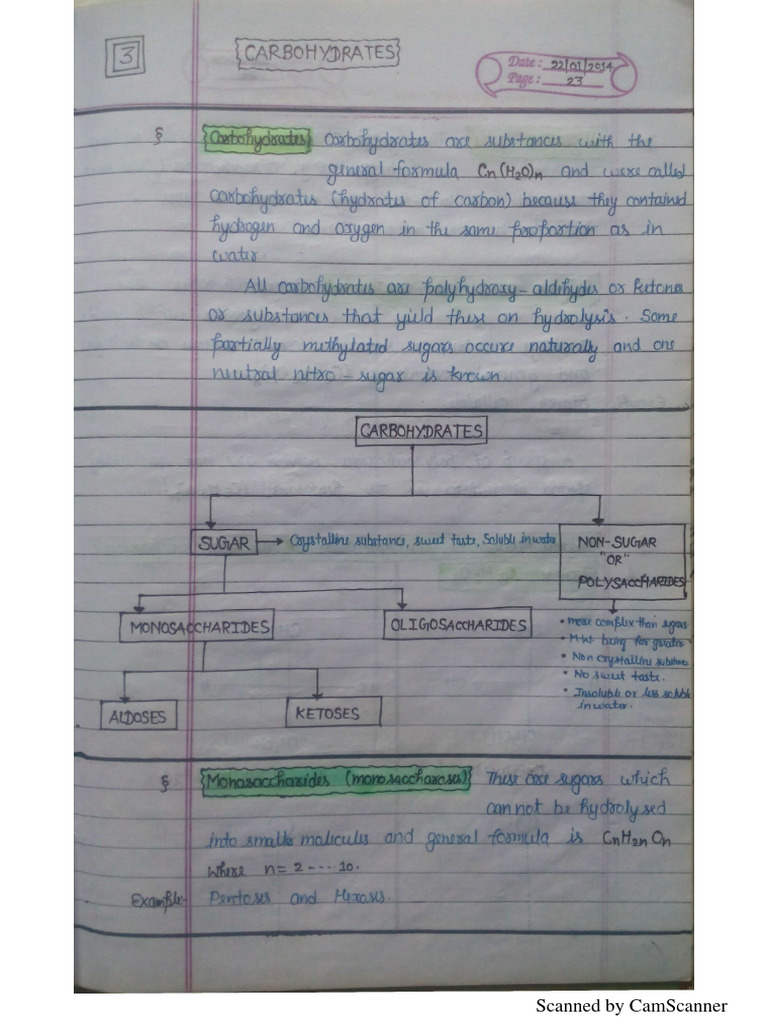 3
CARBOHYDRATES
Date: 22/01/2014
Page: 23
§ Carbohydrates Carbohydrates are substances with the
general formula Cn(H2O)n and were called
carbohydrates (hydrates of carbon) because they contained
hydrogen and oxygen in the same proportion as in
water.
All carbohydrates are polyhydroxy-aldehydes or ketones
or substances that yield these on hydrolysis. Some
partially methylated sugars occure naturally and one
neutral nitro-sugar is known
CARBOHYDRATES
SUGAR
Crystalline substance, sweet taste, Soluble in water
NON-SUGAR
"OR"
POLYSACCHARIDES
MONOSACCHARIDES
OLIGOSACCHARIDES
• more complex than sugars
• M.W being far greater
• Non crystalline substance
• No sweet taste.
• Insoluble or less soluble
in water.
ALDOSES
KETOSES
§ Monosaccharides (monosaccharoses) These are sugars which
cannot be hydrolysed
into smaller molicules and general formula is CnH2nOn
where n= 2 ---- 10.
Example:- Pentoses and Hexoses.
Scanned by CamScanner